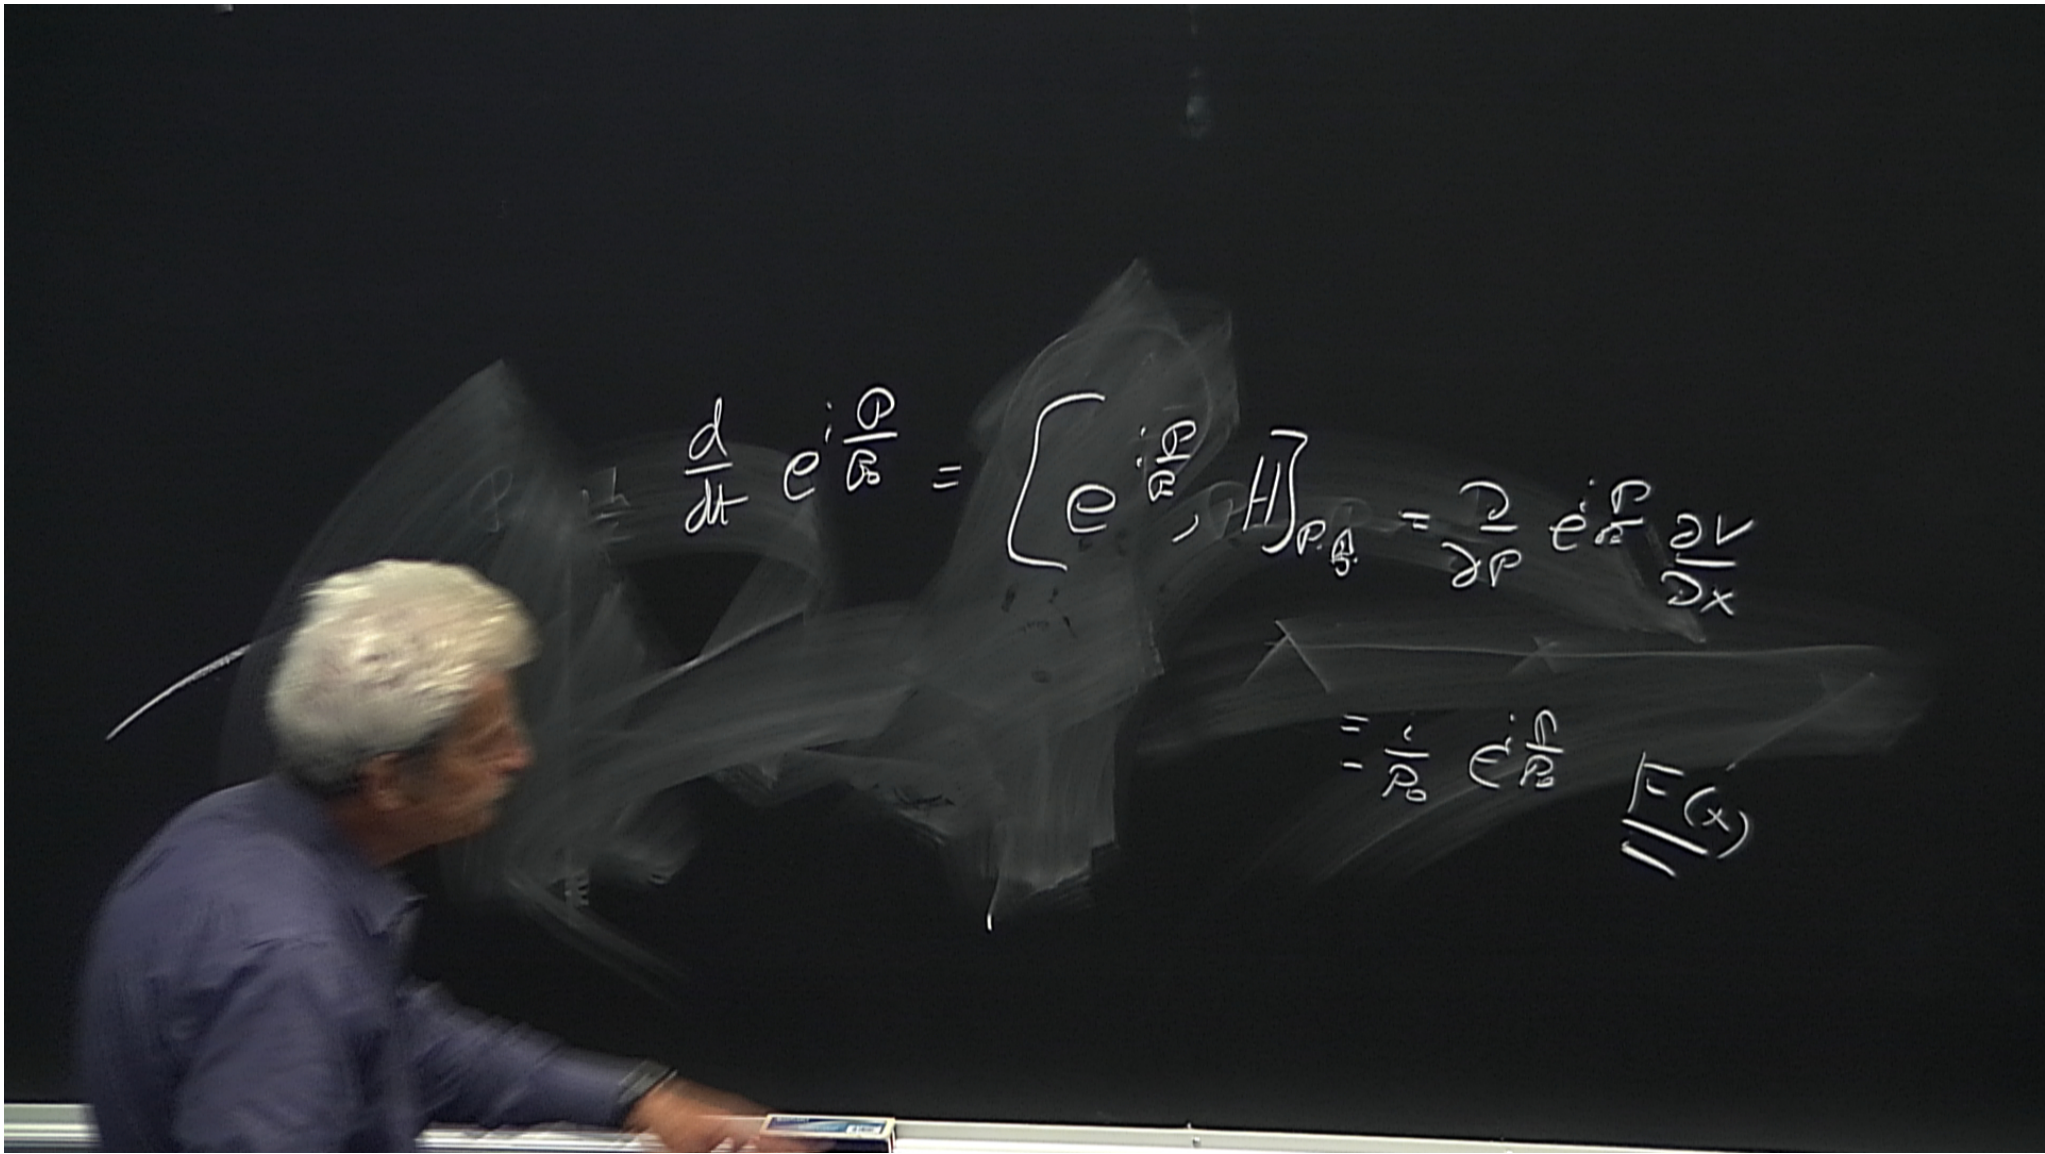 d/dt e^{i P/P₀} = [e^{i P/P₀}, H]_{P.B.} = ∂/∂P e^{i P/P₀} ∂V/∂x
= i/P₀ e^{i P/P₀} F(x)